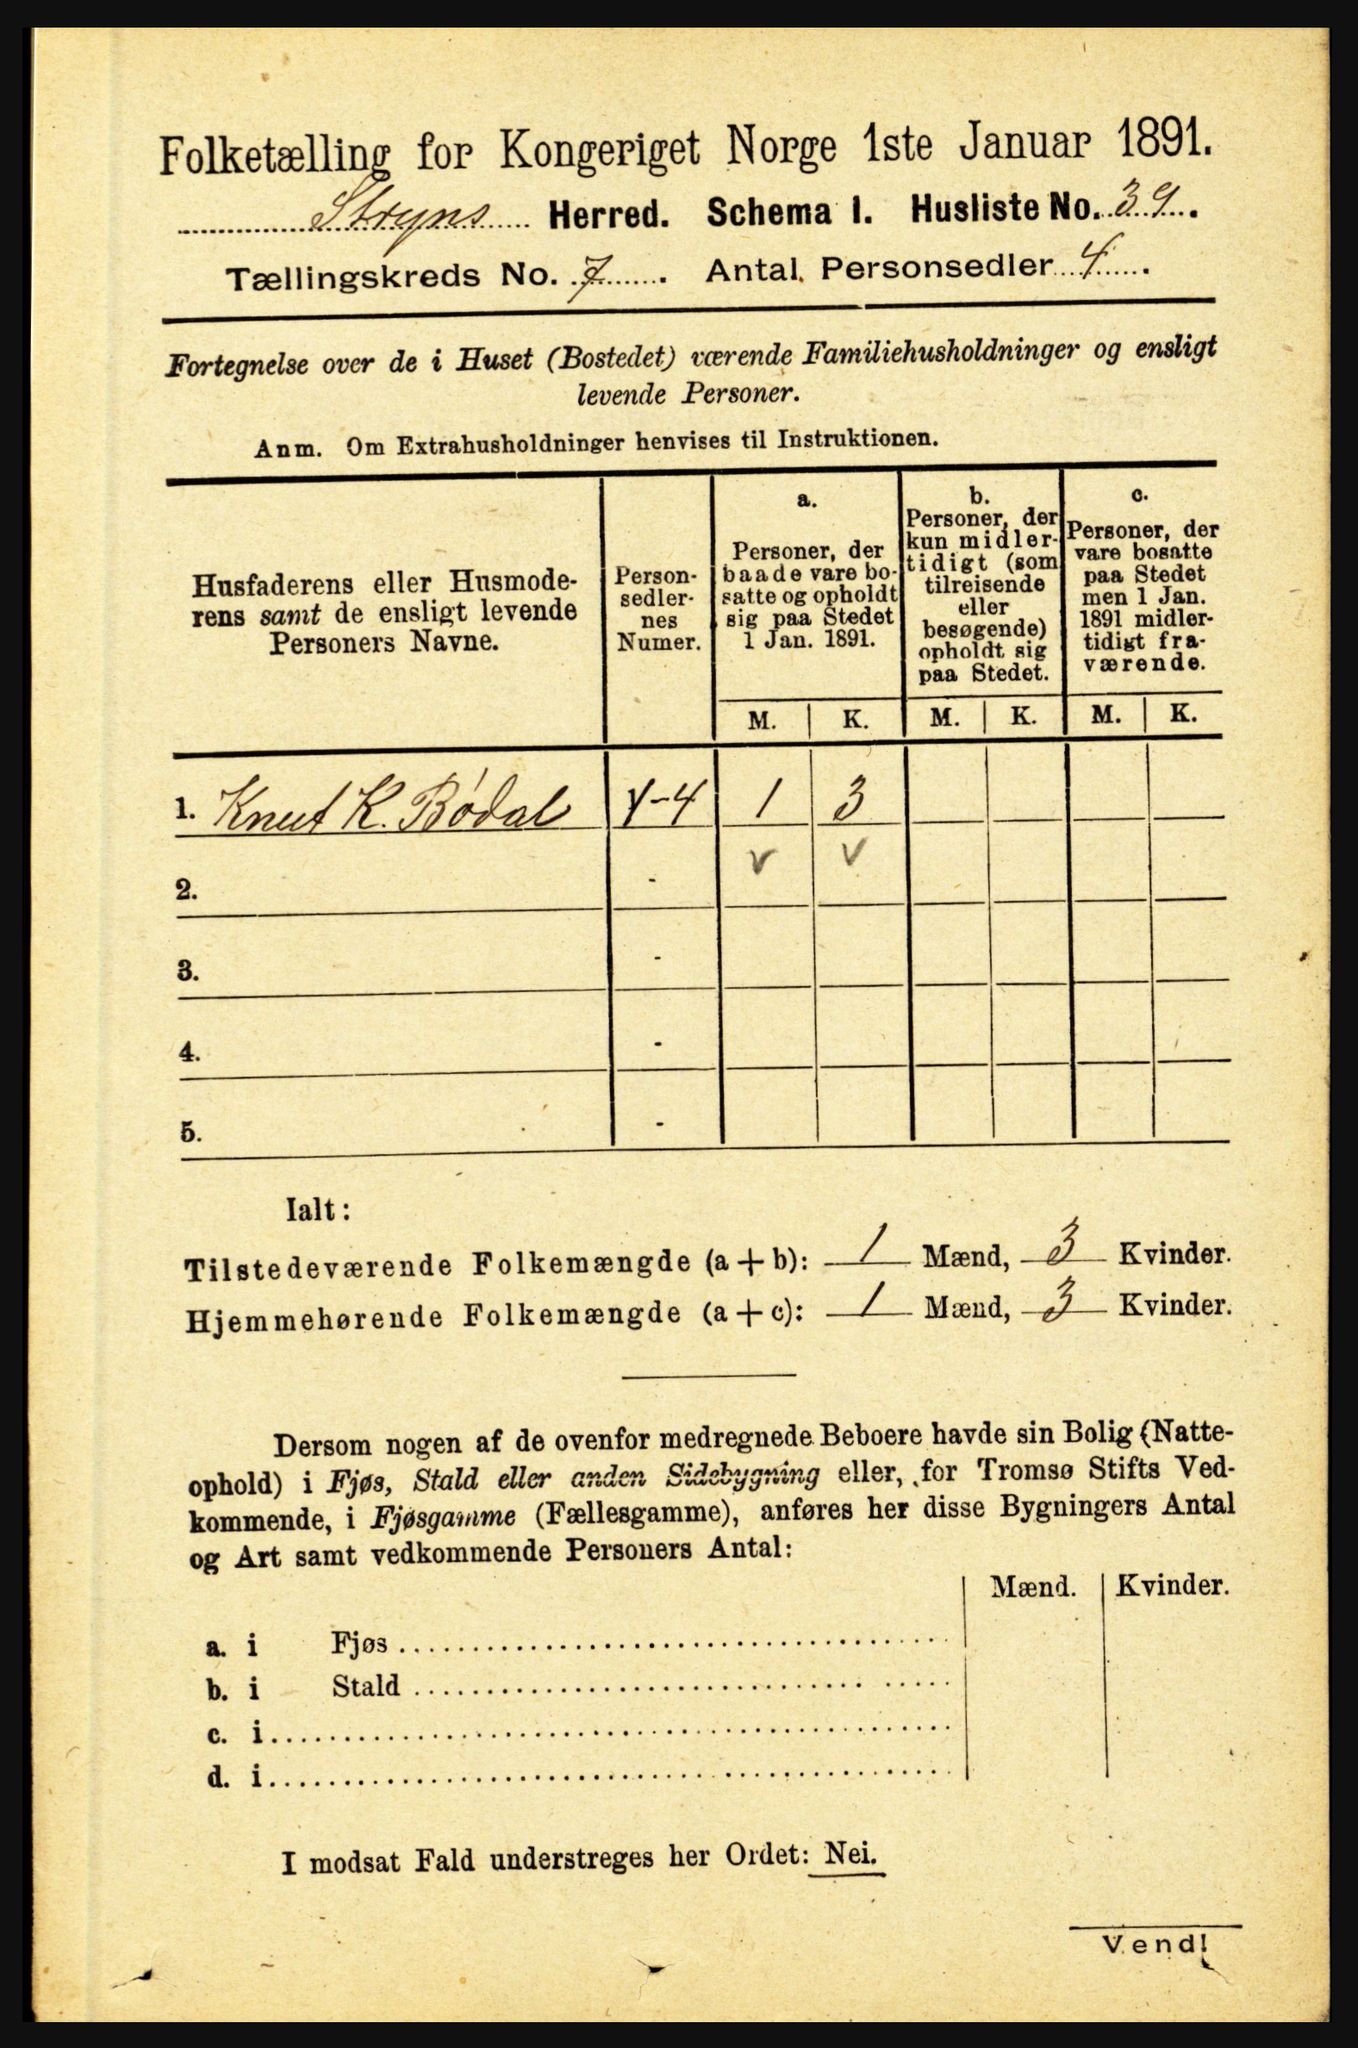 Folketælling for Kongeriget Norge 1ste Januar 1891.
Stryns Herred. Schema I. Husliste No. 39.
Tællingskreds No. 7. Antal Personsedler 4.
Fortegnelse over de i Huset (Bostedet) værende Familiehusholdninger og ensligt
levende Personer.
Anm. Om Extrahusholdninger henvises til Instruktionen.
Husfaderens eller Husmode-
rens samt de ensligt levende
Personers Navne.
Person-
sedler-
nes
Numer.
a.
Personer, der
baade vare bo-
satte og opholdt
sig paa Stedet
1 Jan. 1891.
b.
Personer, der
kun midler-
tidigt (som
tilreisende
eller
besøgende)
opholdt sig
paa Stedet.
c.
Personer, der
vare bosatte
paa Stedet
men 1 Jan.
1891 midler-
tidigt fra-
værende.
M. K. M. K. M. K.
1. Knut K. Bødal 1-4 1 3
v v
2. -
3. -
4. -
5. -
Ialt:
Tilstedeværende Folkemængde (a + b): 1 Mænd, 3 Kvinder.
Hjemmehørende Folkemængde (a + c): 1 Mænd, 3 Kvinder.
Dersom nogen af de ovenfor medregnede Beboere havde sin Bolig (Natte-
ophold) i Fjøs, Stald eller anden Sidebygning eller, for Tromsø Stifts Ved-
kommende, i Fjøsgamme (Fællesgamme), anføres her disse Bygningers Antal
og Art samt vedkommende Personers Antal:
Mænd. Kvinder.
a. i Fjøs
b. i Stald
c. i
d. i
I modsat Fald understreges her Ordet: Nei.
Vend!